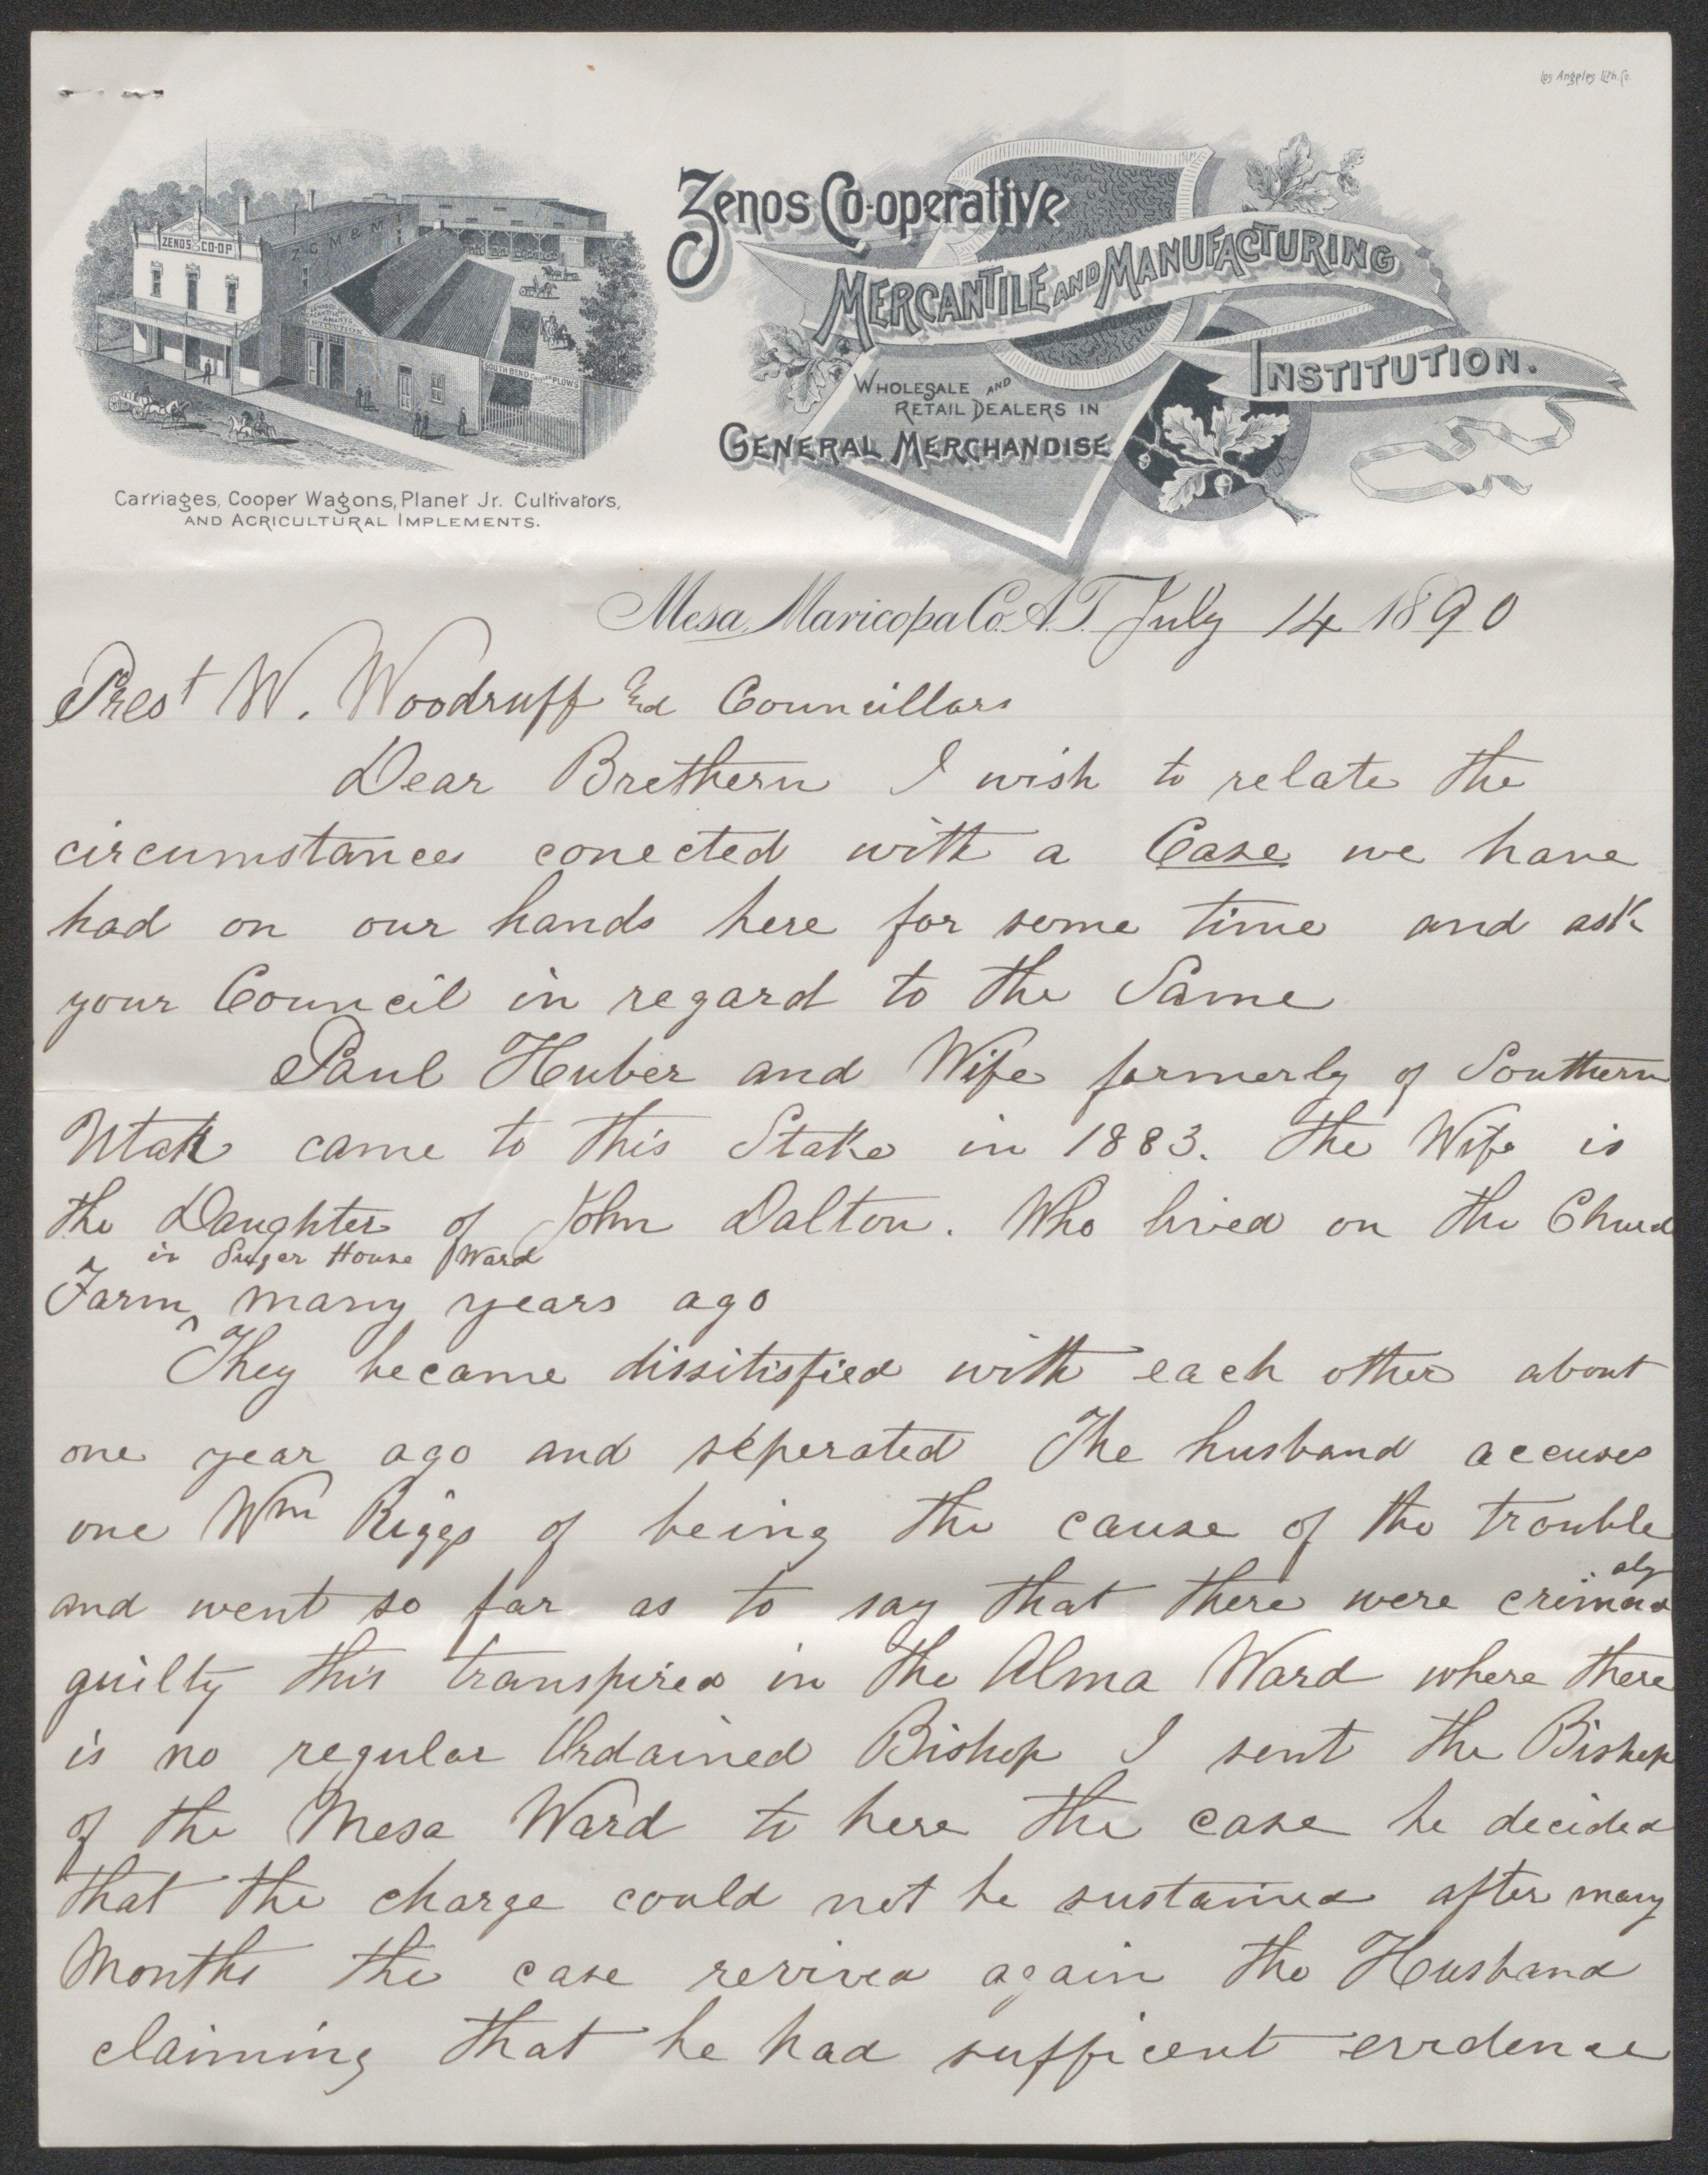 Los Angeles Lith. Co.
ZENOS CO-OP
Z C M & M I
INSTITUTION
SOUTH BEND PLOWS
Zenos Co-operative
MERCANTILE AND MANUFACTURING
INSTITUTION.
WHOLESALE AND
RETAIL DEALERS IN
GENERAL MERCHANDISE
Carriages, Cooper Wagons, Planet Jr. Cultivators,
AND AGRICULTURAL IMPLEMENTS.
Mesa, Maricopa Co. A.T. July 14 1890
Prest W. Woodruff and Councillars
Dear Brethern I wish to relate the
circumstances conected with a Case we have
had on our hands here for some time and ask
your Council in regard to the Same
Paul Huber and Wife formerly of Southern
Utah came to this Stake in 1883. The Wife is
the Daughter of John Dalton. Who lived on the Church
in Suger House Ward
Farm ^ many years ago
They became dissitisfied with each other about
one year ago and seperated The husband accuses
one Wm Riggs of being the cause of the trouble
and went so far as to say that there were crimnaly
guilty this transpired in the Alma Ward where there
is no regular Ordained Bishop I sent the Bishop
of the Mesa Ward to here the case he decided
that the charge could not be sustained after many
Months the case revived again the Husband
claiming that he had sufficent evidence